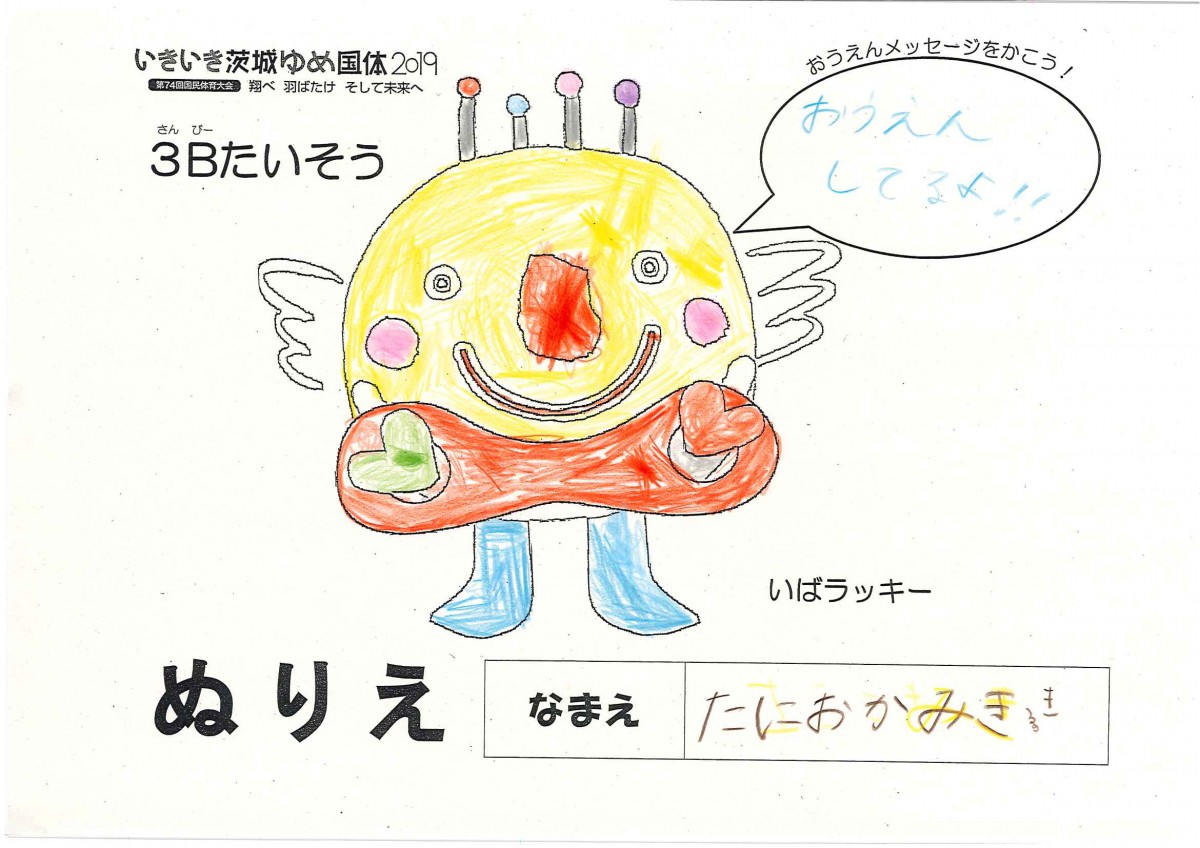 いきいき茨城ゆめ国体2019
第74回国民体育大会 翔べ 羽ばたけ そして未来へ
さん びー
3Bたいそう
おうえんメッセージをかこう!
おうえん
してるよ!!
いばラッキー
ぬりえ
なまえ
たにおかみき